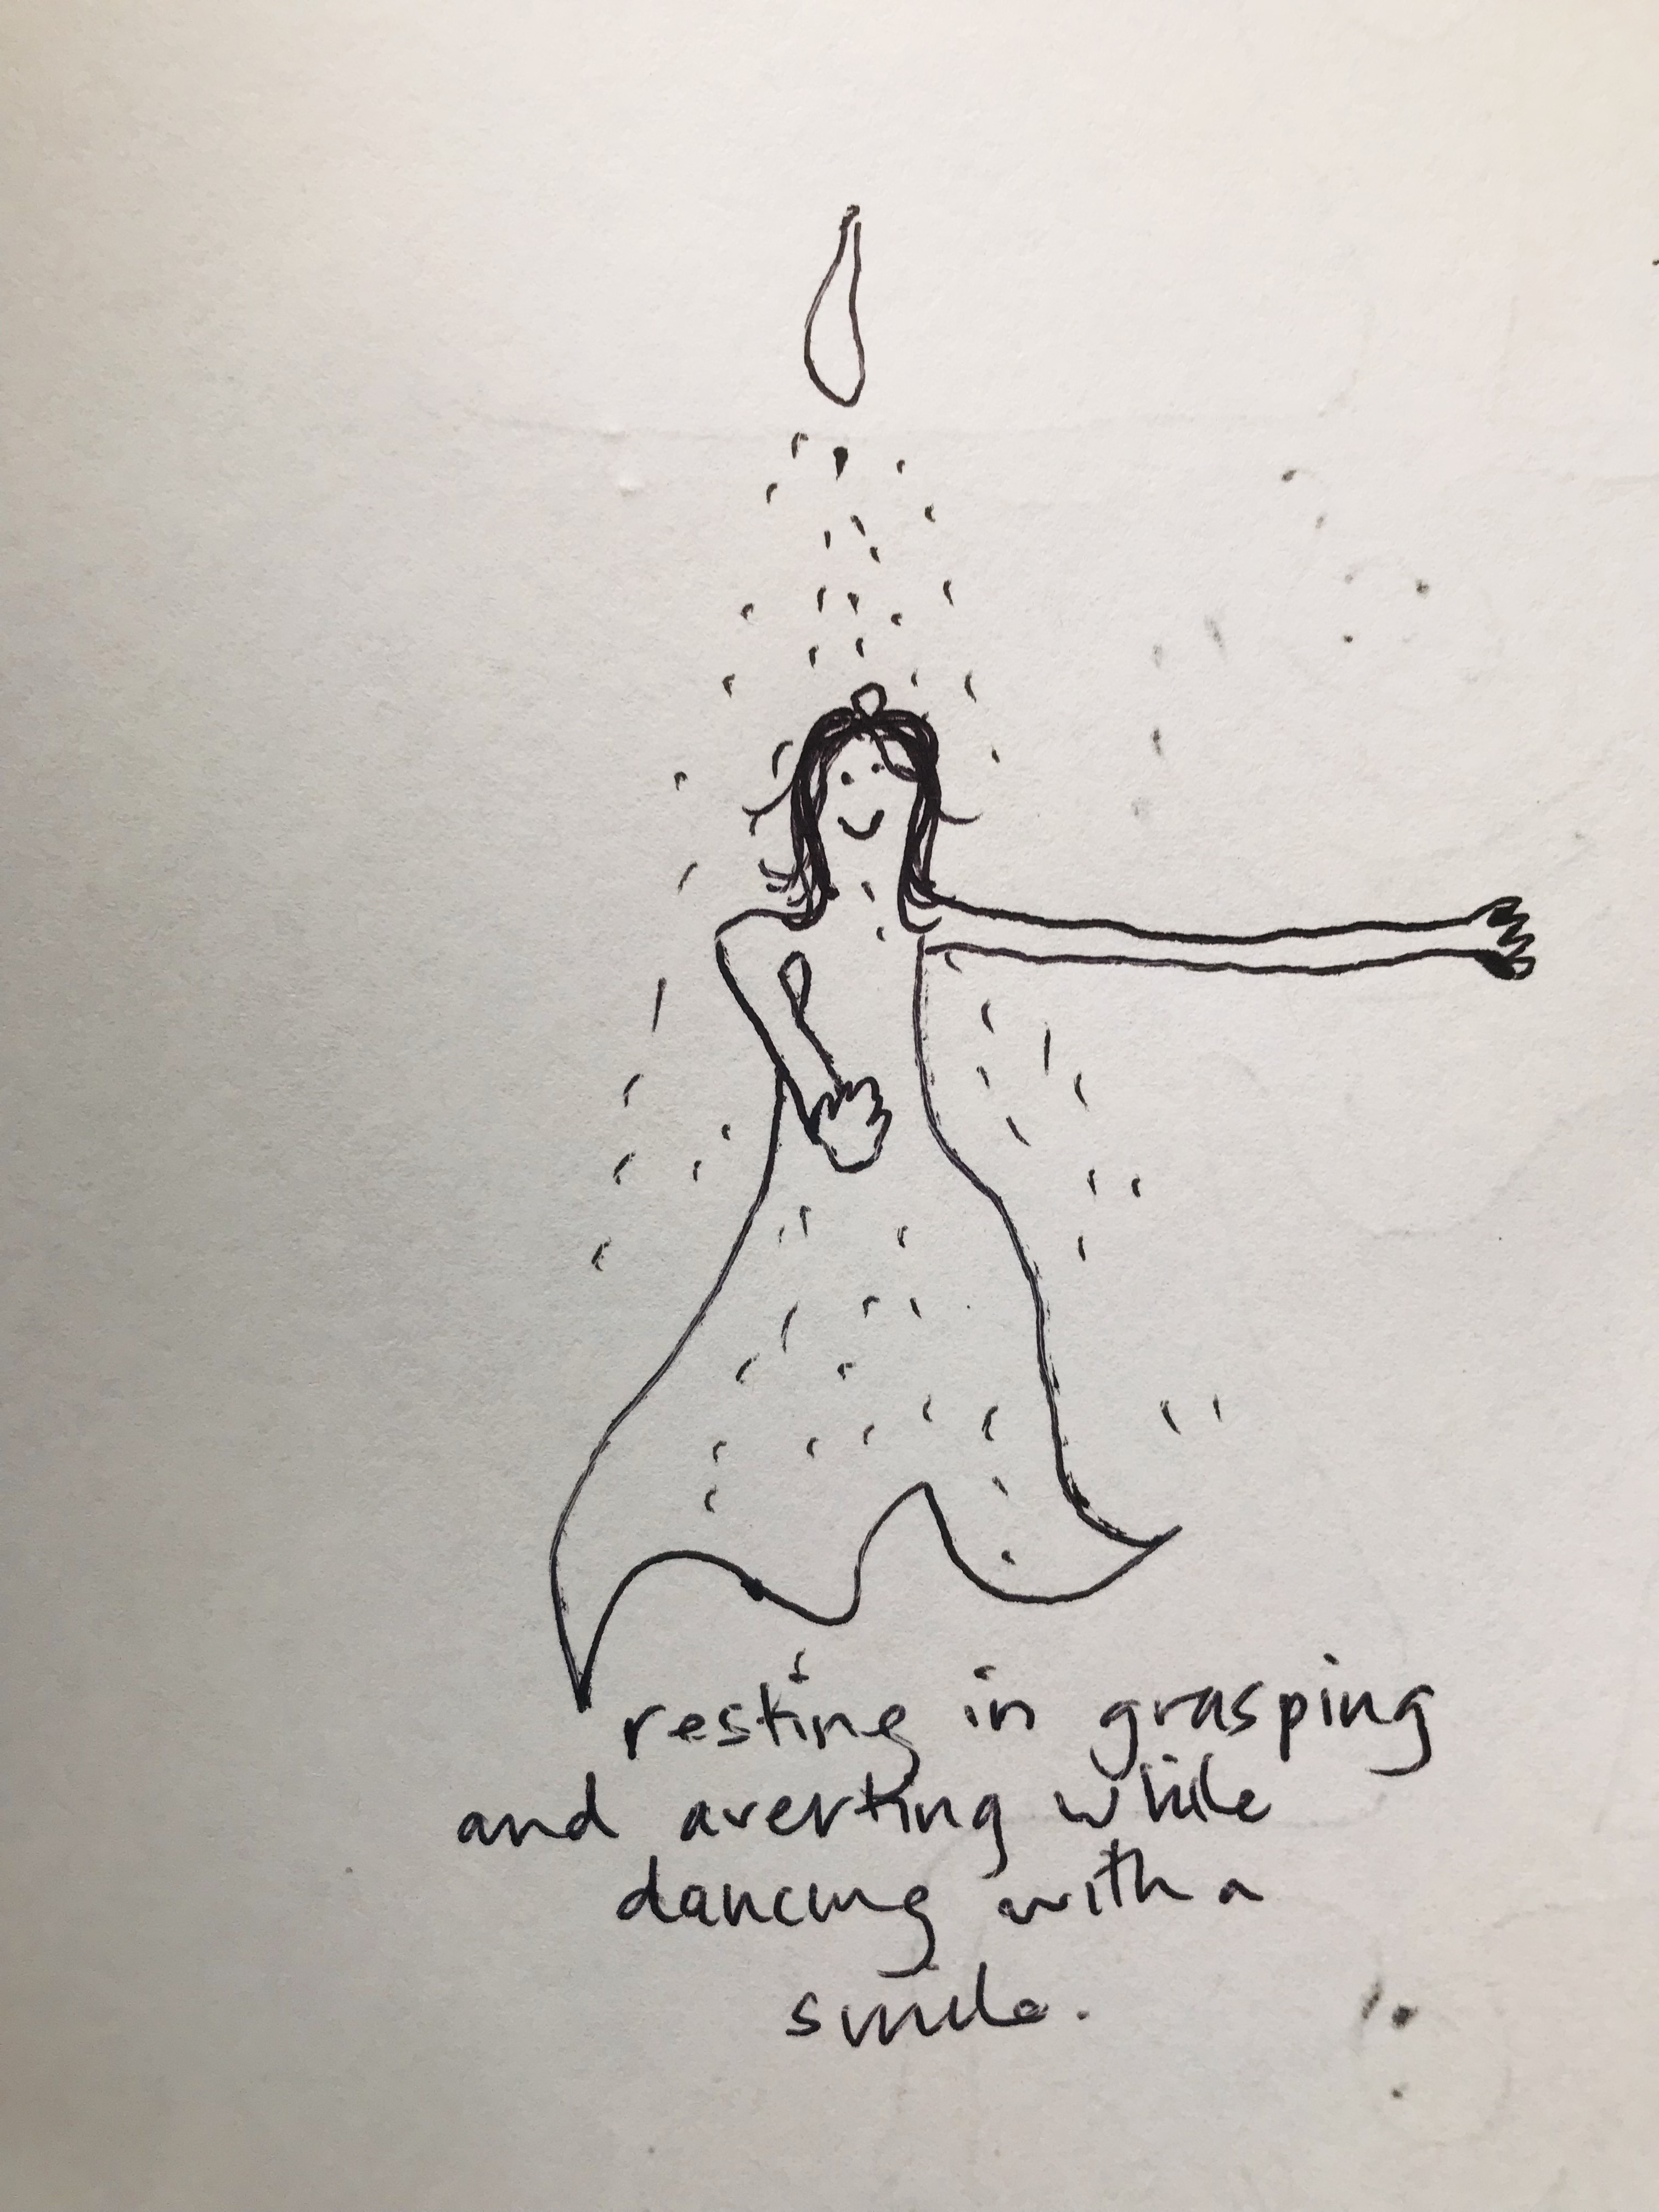 resting in grasping
and averting while
dancing with a
smile.